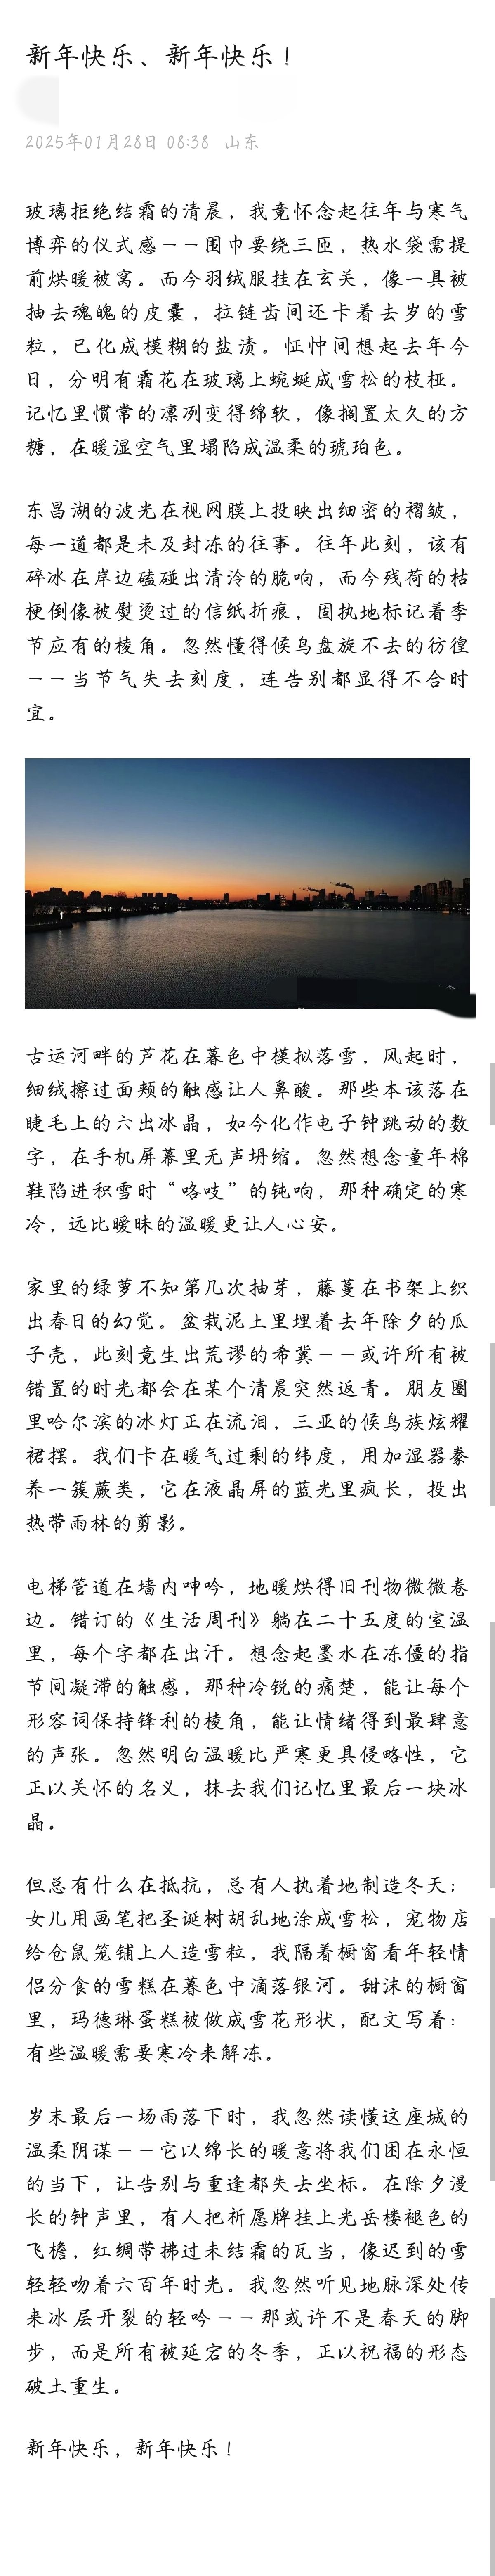 新年快乐、新年快乐！
2025年01月28日 08:38 山东
玻璃拒绝结霜的清晨，我竟怀念起往年与寒气
博弈的仪式感——围巾要绕三匝，热水袋需提
前烘暖被窝。而今羽绒服挂在玄关，像一具被
抽去魂魄的皮囊，拉链齿间还卡着去岁的雪
粒，已化成模糊的盐渍。怔忡间想起去年今
日，分明有霜花在玻璃上蜿蜒成雪松的枝桠。
记忆里惯常的凛冽变得绵软，像搁置太久的方
糖，在暖湿空气里塌陷成温柔的琥珀色。
东昌湖的波光在视网膜上投映出细密的褶皱，
每一道都是未及封冻的往事。往年此刻，该有
碎冰在岸边磕碰出清泠的脆响，而今残荷的枯
梗倒像被熨烫过的信纸折痕，固执地标记着季
节应有的棱角。忽然懂得候鸟盘旋不去的彷徨
——当节气失去刻度，连告别都显得不合时
宜。
古运河畔的芦花在暮色中模拟落雪，风起时，
细绒擦过面颊的触感让人鼻酸。那些本该落在
睫毛上的六出冰晶，如今化作电子钟跳动的数
字，在手机屏幕里无声坍缩。忽然想念童年棉
鞋陷进积雪时“咯吱”的钝响，那种确定的寒
冷，远比暧昧的温暖更让人心安。
家里的绿萝不知第几次抽芽，藤蔓在书架上织
出春日的幻觉。盆栽泥土里埋着去年除夕的瓜
子壳，此刻竟生出荒谬的希冀——或许所有被
错置的时光都会在某个清晨突然返青。朋友圈
里哈尔滨的冰灯正在流泪，三亚的候鸟族炫耀
裙摆。我们卡在暖气过剩的纬度，用加湿器豢
养一簇蕨类，它在液晶屏的蓝光里疯长，投出
热带雨林的剪影。
电梯管道在墙内呻吟，地暖烘得旧刊物微微卷
边。错订的《生活周刊》躺在二十五度的室温
里，每个字都在出汗。想念起墨水在冻僵的指
节间凝滞的触感，那种冷锐的痛楚，能让每个
形容词保持锋利的棱角，能让情绪得到最肆意
的声张。忽然明白温暖比严寒更具侵略性，它
正以关怀的名义，抹去我们记忆里最后一块冰
晶。
但总有什么在抵抗，总有人执着地制造冬天；
女儿用画笔把圣诞树胡乱地涂成雪松，宠物店
给仓鼠笼铺上人造雪粒，我隔着橱窗看年轻情
侣分食的雪糕在暮色中滴落银河。甜沫的橱窗
里，玛德琳蛋糕被做成雪花形状，配文写着：
有些温暖需要寒冷来解冻。
岁末最后一场雨落下时，我忽然读懂这座城的
温柔阴谋——它以绵长的暖意将我们困在永恒
的当下，让告别与重逢都失去坐标。在除夕漫
长的钟声里，有人把祈愿牌挂上光岳楼褪色的
飞檐，红绸带拂过未结霜的瓦当，像迟到的雪
轻轻吻着六百年时光。我忽然听见地脉深处传
来冰层开裂的轻吟——那或许不是春天的脚
步，而是所有被延宕的冬季，正以祝福的形态
破土重生。
新年快乐，新年快乐！